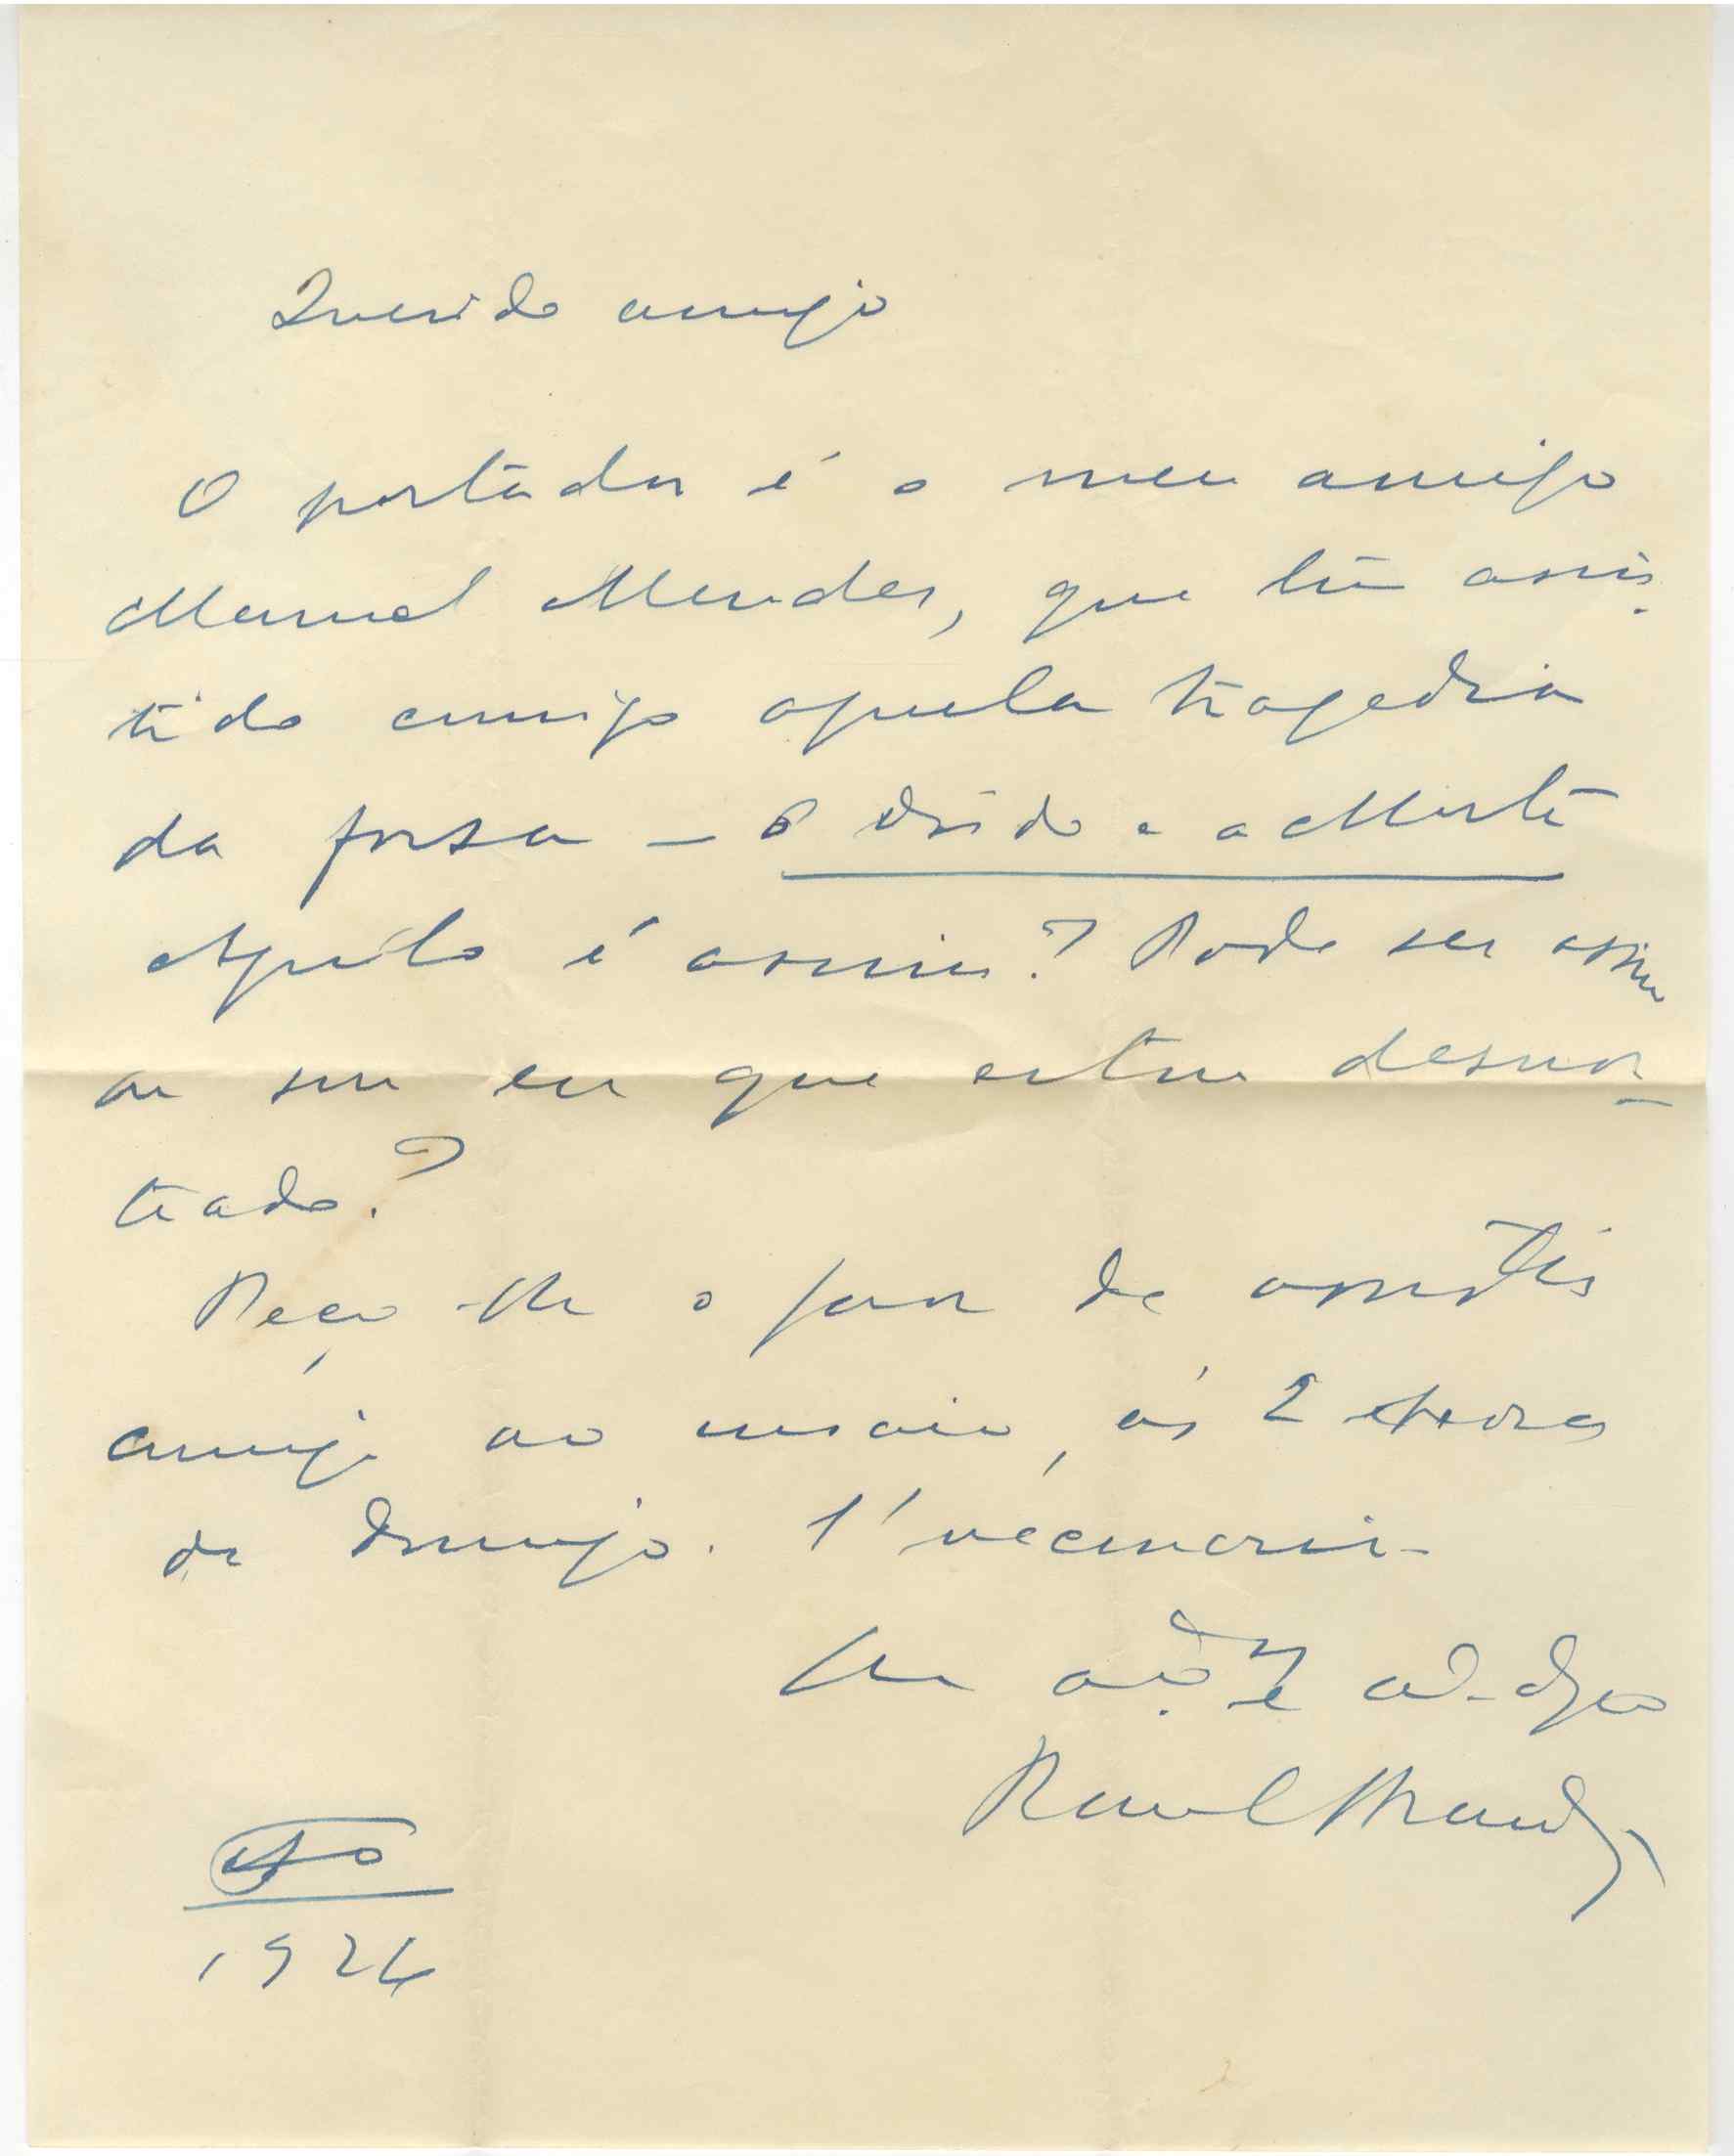 Querido amigo
O portador é o meu amigo
Manuel Mendes, que tem assis-
tido comigo aquela tragedia
da farsa – O Doido e a Morte
Aquilo é assim? Pode ser assim
ou sou eu que estou desnor-
teado?
Peço-lhe o favor de assistir
comigo ao ensaio, ás 2 horas
de domingo. É necessario.
Um
Raul Brandão
1926